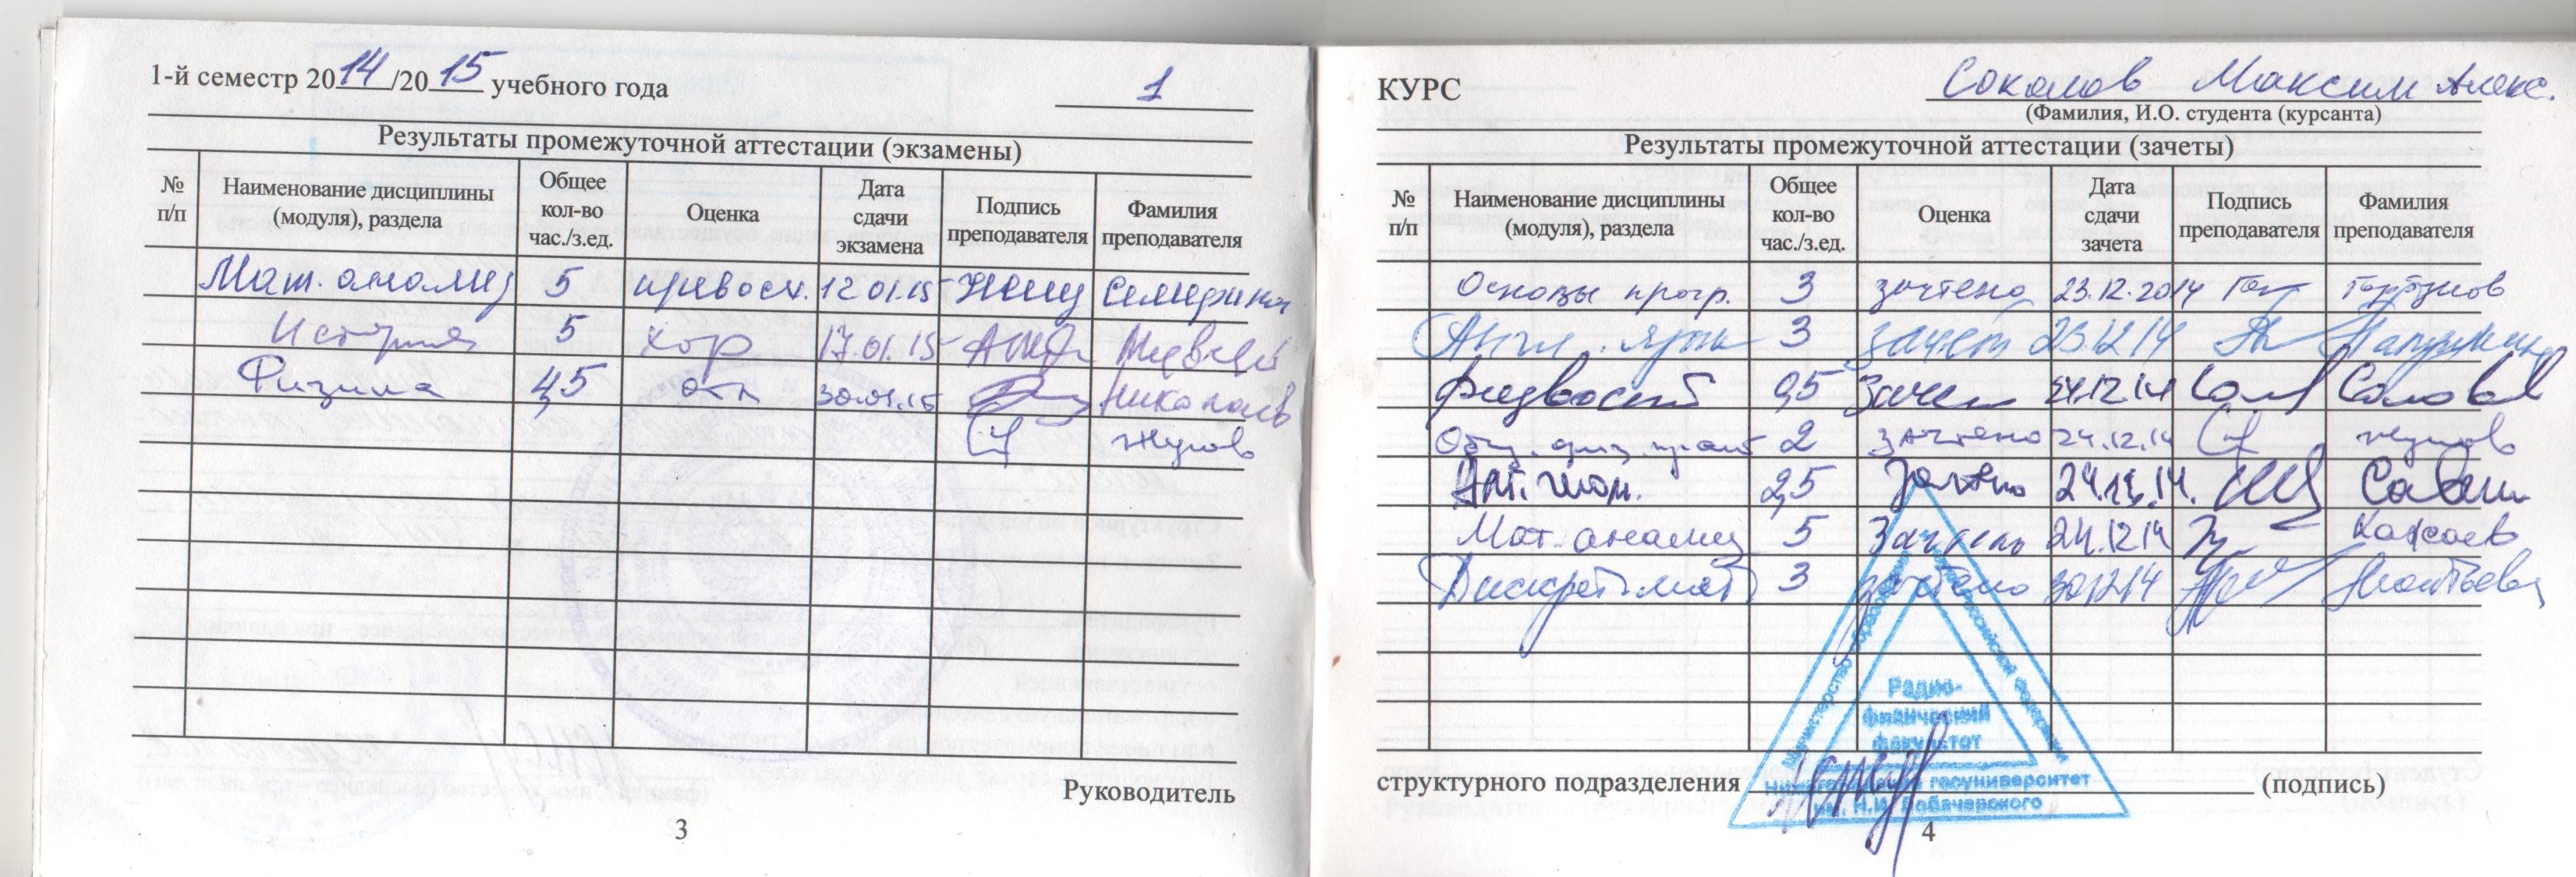 1-й семестр 2014/2015 учебного года 1
Результаты промежуточной аттестации (экзамены)
№ п/п Наименование дисциплины (модуля), раздела Общее кол-во час./з.ед. Оценка Дата сдачи экзамена Подпись преподавателя Фамилия преподавателя
Мат. анализ 5 превосх. 12.01.15
История 5 хор 17.01.15
Физика 4,5 отл 30.01.15 Николаев
Жуков
Руководитель
3
КУРС Соколов Максим Алекс.
(Фамилия, И.О. студента (курсанта)
Результаты промежуточной аттестации (зачеты)
№ п/п Наименование дисциплины (модуля), раздела Общее кол-во час./з.ед. Оценка Дата сдачи зачета Подпись преподавателя Фамилия преподавателя
Основы прогр. 3 зачтено 23.12.2014 Горбунов
Англ. язык 3 зачет 23.12.14
0,5 24.12.14
Общ. физ. практ 2 зачтено 24.12.14 Жуков
2,5 зачтено 24.12.14. Савин
Мат. анализ 5 24.12.14
Дискрет. мат 3 зачтено 30.12.14 Леонтьева
Министерство образования Российской Федерации
Радио-
физический
факультет
структурного подразделения (подпись)
Нижегородский госуниверситет
им. Н.И. Лобачевского
4